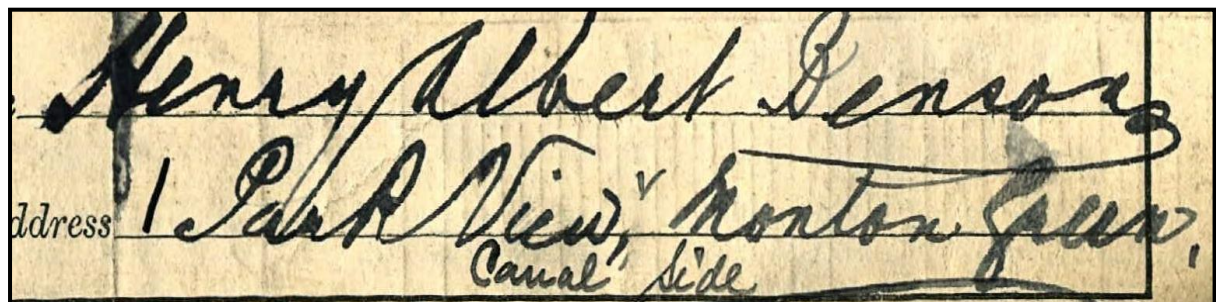 Henry Albert Benson
ddress 1 Park View, Monton Green,
Canal Side